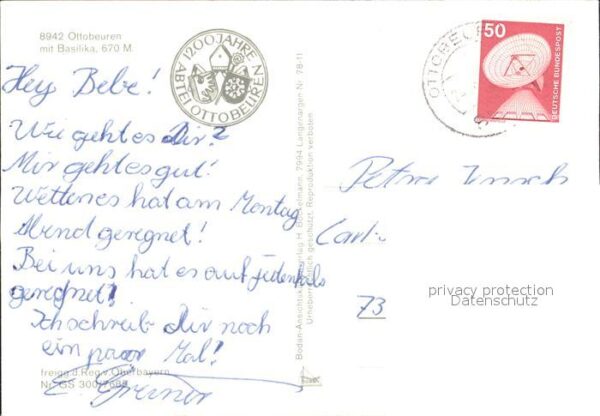 8942 Ottobeuren
mit Basilika, 670 M.
1200 JAHRE
ABTEI OTTOBEUREN
Hey Bebe!
Wie geht es Dir?
Mir geht es gut!
hat am Montag
Abend geregnet!
Bei uns hat es auf jedenfals
geregnet!
Ich schreib dir noch
ein paar Mal!
freigg.d.Reg.v.Oberbayern
Nr. GS 300/7685
Bodan-Ansichtskartenverlag H. 7994 Langenargen Nr. 78-11
Urheberrechtlich geschützt, Reproduktion verboten
OTTOBEU
50
DEUTSCHE BUNDESPOST
Petra
73
privacy protection
Datenschutz